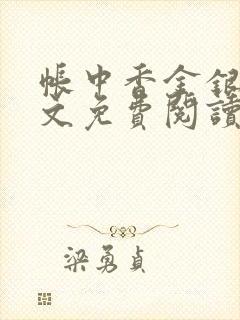 帳中香金銀
文免費閱讀
梁勇貞